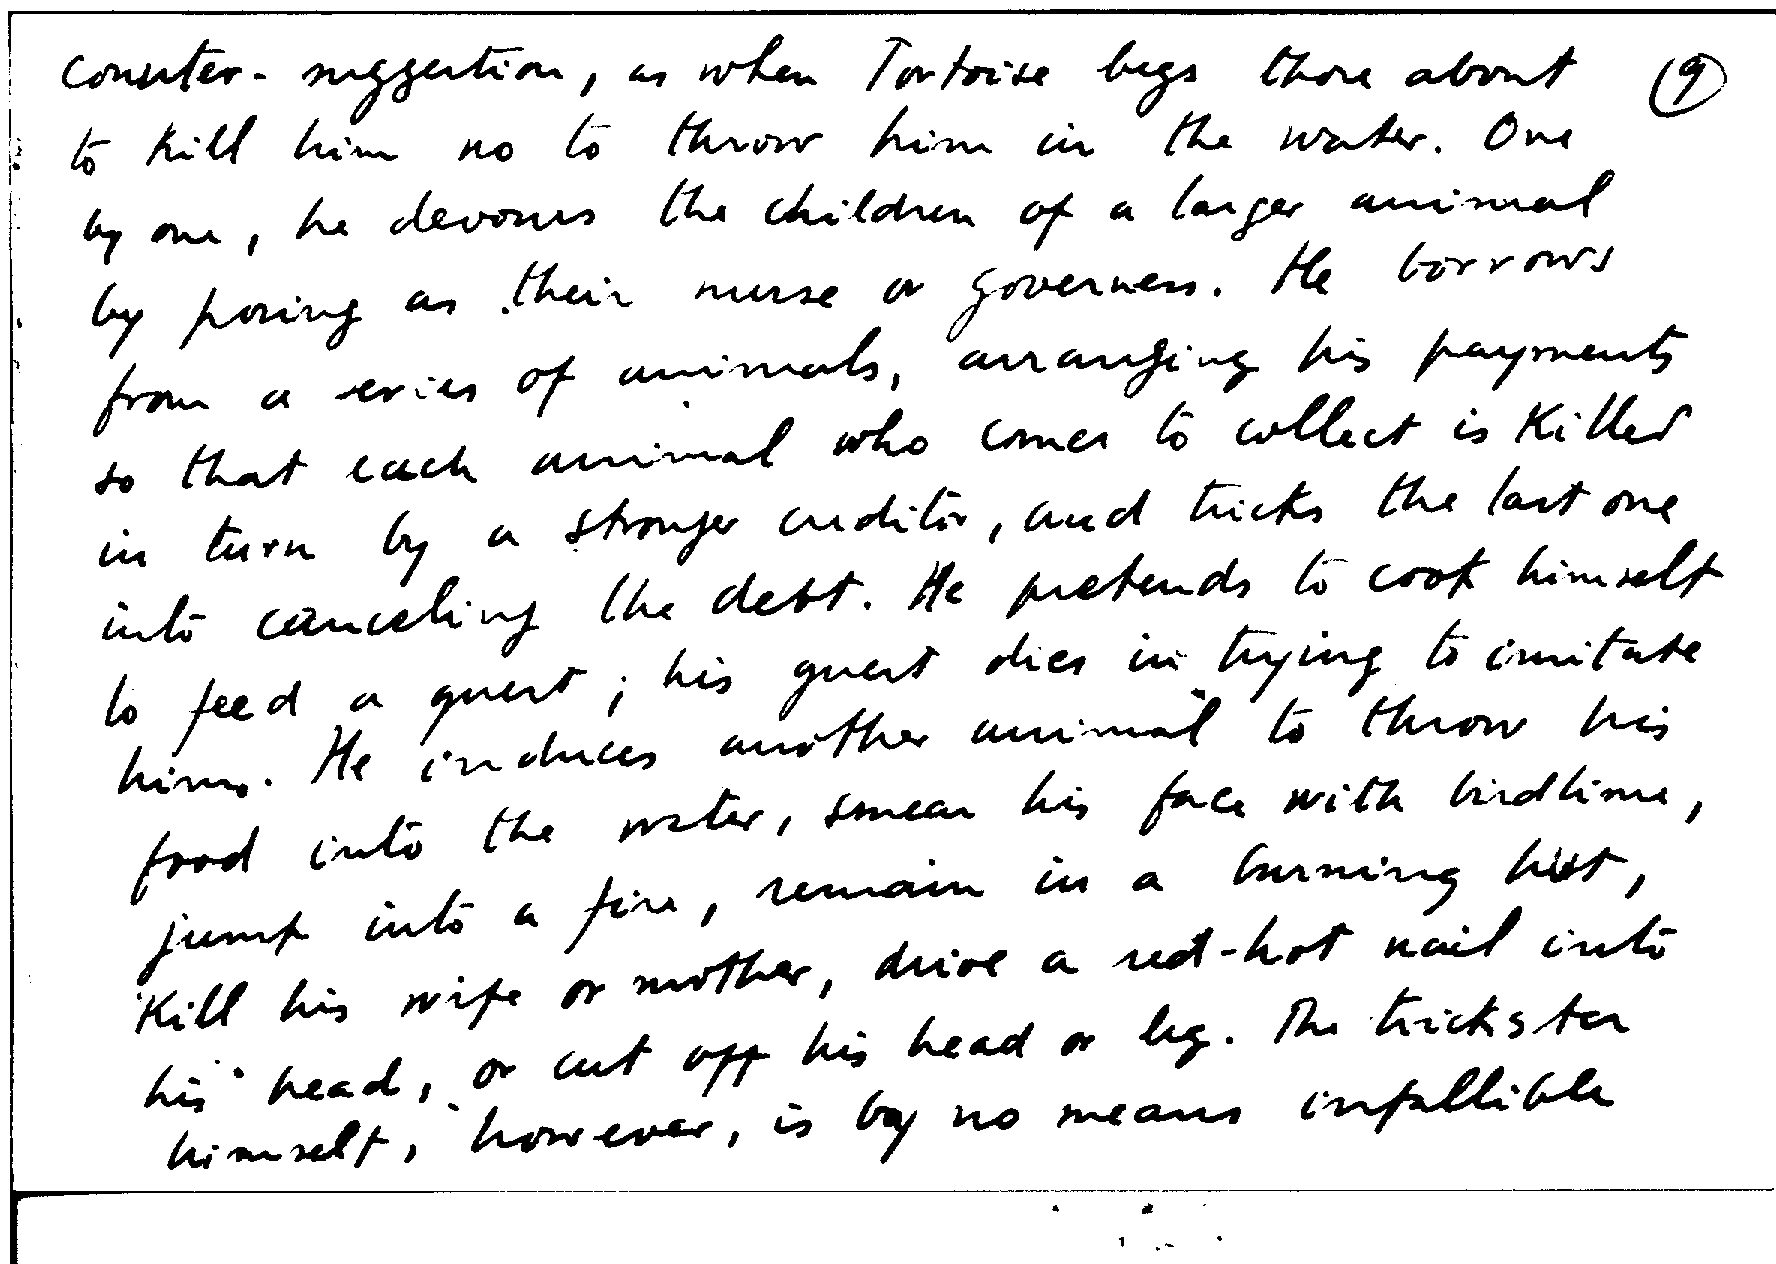 counter-suggestion, as when Tortoise begs those about ⑨
to kill him no to throw him in the water. One
by one, he devours the children of a larger animal
by posing as their nurse or governess. He borrows
from a series of animals, arranging his payments
so that each animal who comes to collect is killed
in turn by a stronger creditor, and tricks the last one
into canceling the debt. He pretends to cook himself
to feed a guest; his guest dies in trying to imitate
him. He induces another animal to throw his
food into the water, smear his face with birdlime,
jump into a fire, remain in a burning hut,
kill his wife or mother, drive a red-hot nail into
his head, or cut off his head or leg. The trickster
himself, however, is by no means infallible